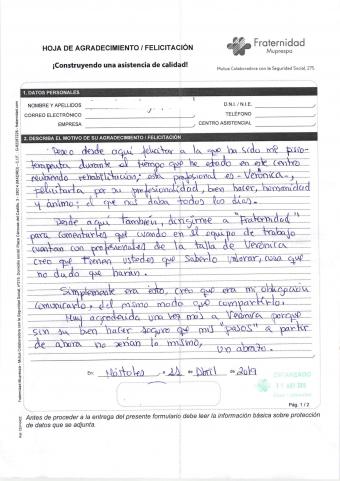 HOJA DE AGRADECIMIENTO / FELICITACIÓN
Fraternidad
Muprespa
¡Construyendo una asistencia de calidad!
Mutua Colaboradora con la Seguridad Social, 275
1. DATOS PERSONALES
NOMBRE Y APELLIDOS
D.N.I. / N.I.E.
CORREO ELECTRÓNICO
TELÉFONO
EMPRESA
CENTRO ASISTENCIAL
2. DESCRIBA EL MOTIVO DE SU AGRADECIMIENTO / FELICITACIÓN
Deseo desde aquí felicitar a la que ha sido mi fisio-
terapeuta durante el tiempo que he estado en este centro
recibiendo rehabilitación; esta profesional es - Verónica -,
felicitarla por su profesionalidad, bien hacer, humanidad
y ánimo; el que nos daba todos los días.
Desde aquí también, dirigirme a "Fraternidad"
para comentarles que cuando en el equipo de trabajo
cuentan con profesionales de la talla de Verónica
creo que tienen ustedes que saberlo valorar, cosa que
no dudo que harán.
Simplemente era esto, creo que era mi obligación
comunicarlo, del mismo modo que compartirlo.
Muy agradecida una vez más a Verónica porque
sin su bien hacer seguro que mis "pasos" a partir
de ahora no serían lo mismo,
Un abrazo.
En Móstoles, 11 de Abril de 2019
Pág. 1 / 2
Antes de proceder a la entrega del presente formulario debe leer la información básica sobre protección
de datos que se adjunta.